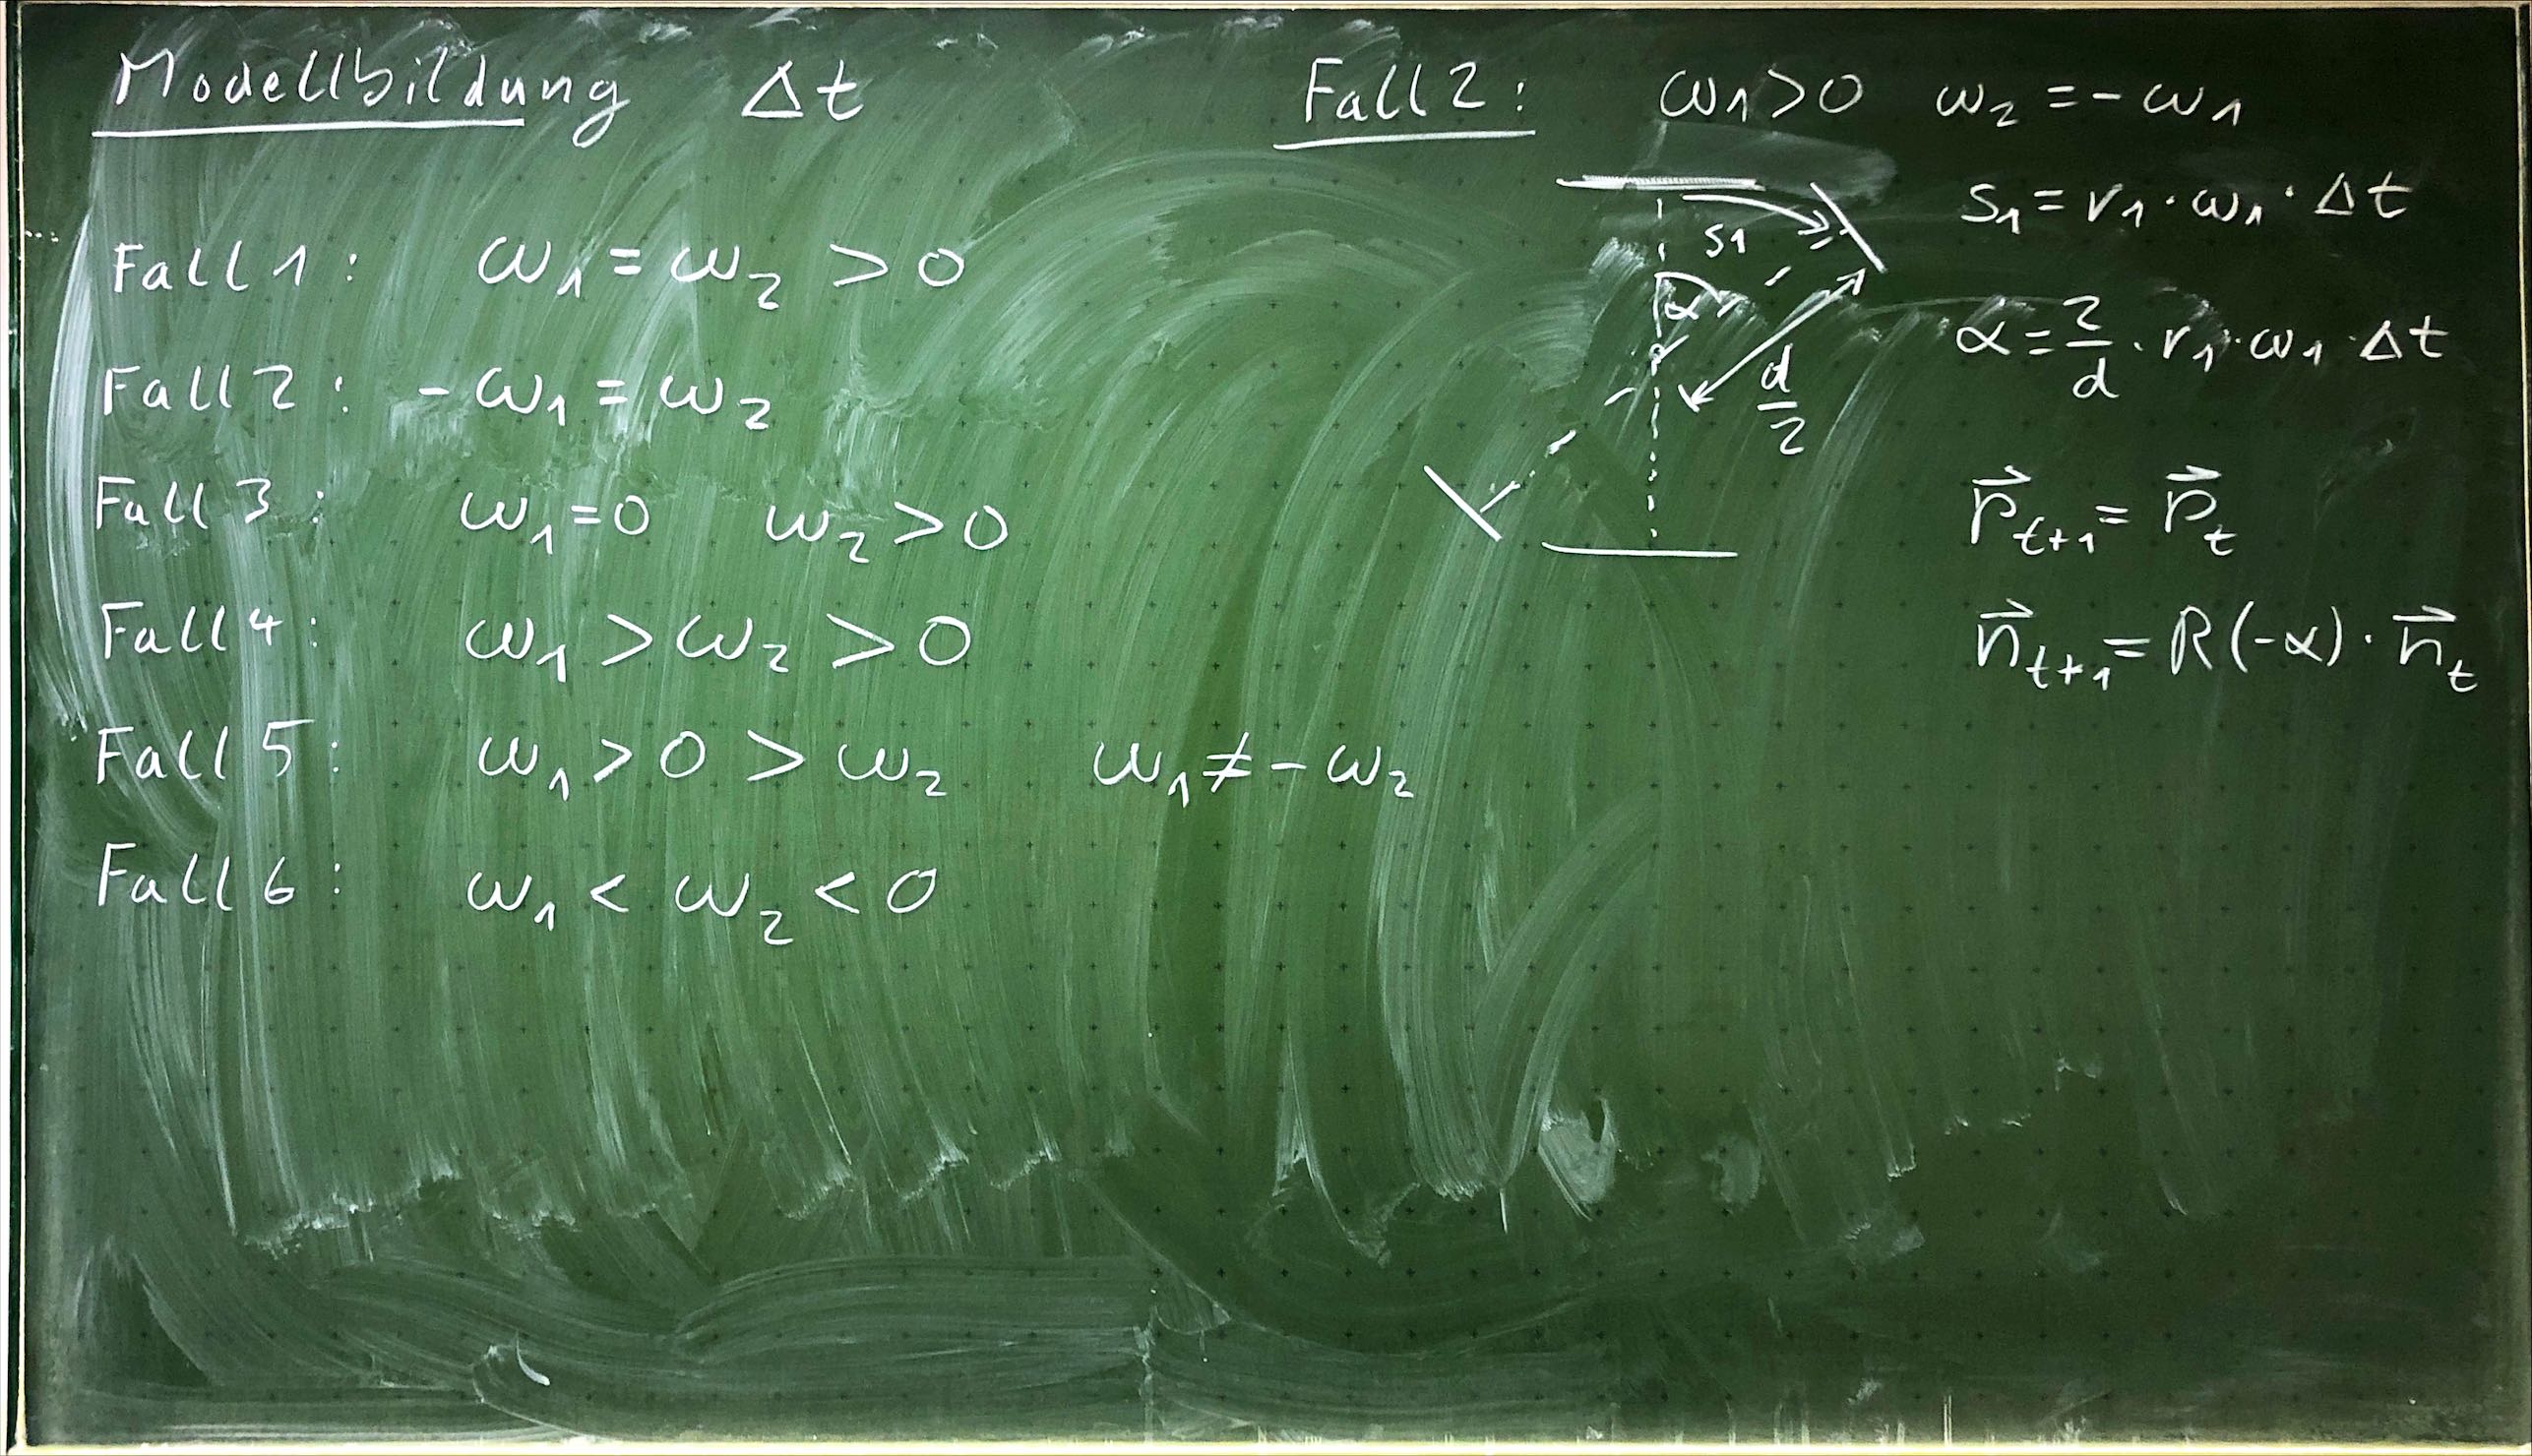 Modellbildung Δt
Fall 1: ω₁ = ω₂ > 0
Fall 2: -ω₁ = ω₂
Fall 3: ω₁=0 ω₂ > 0
Fall 4: ω₁ > ω₂ > 0
Fall 5: ω₁ > 0 > ω₂ ω₁ ≠ -ω₂
Fall 6: ω₁ < ω₂ < 0
Fall 2: ω₁>0 ω₂ = -ω₁
s₁
α
d/2
s₁ = r₁ · ω₁ · Δt
α = 2/d · r₁ · ω₁ · Δt
p⃗ₜ₊₁ = p⃗ₜ
n⃗ₜ₊₁ = R(-α) · n⃗ₜ